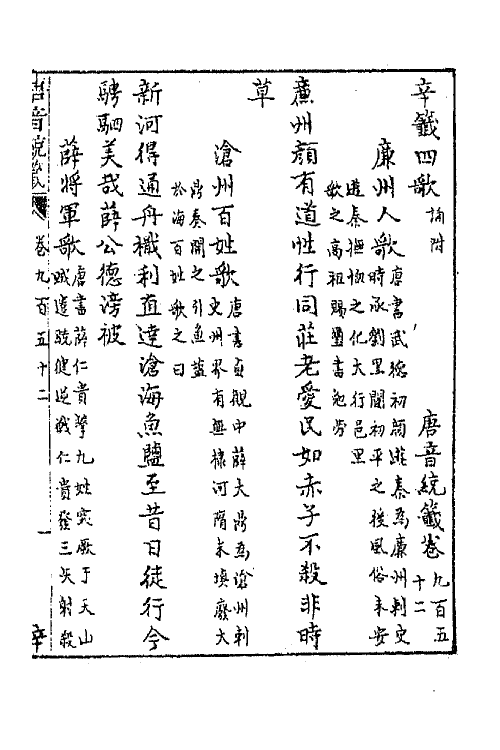 辛籖四歌 備附　唐音統籖卷九百五十二
廉州人歌 唐書武德初顔遊秦為廉州刺史
時承劉黑闥初平之後風俗未安
遊秦撫恤之化大行邑里
歌之高祖賜璽書勉勞
廉州顔有道性行同莊老愛民如赤子不殺非時
草
滄州百姓歌 唐書貞觀中薛大鼎為滄州刺
史州界有無棣河隋末填廢大
鼎奏開之引魚鹽
於海百姓歌之曰
新河得通舟檝利直達滄海魚鹽至昔日徒行今
騁駟美哉薛公德滂被
薛將軍歌 唐書薛仁貴擊九姓突厥于天山
賊遣驍健逆戰仁貴發三矢射殺
唐音統籖　卷九百五十二　一　辛